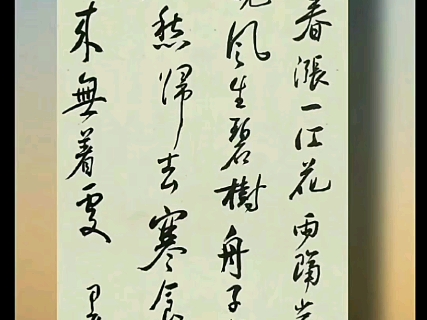 春漲一江花雨隔岸
晚風生碧樹舟子
愁歸去寒食
來無着處